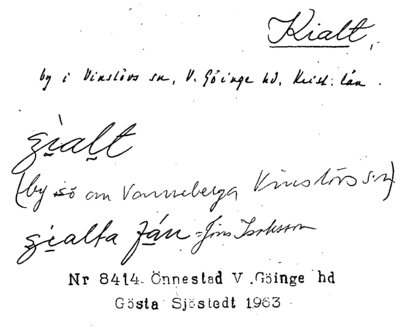 Kialt,
by i Vinslövs sn, V. Göinge hd, Krist. län.
gialt
(by sö om Vanneberga Vinslövs sn)
gialta ján = Jöns Isaksson
Nr 8414. Önnestad V .Göinge hd
Gösta Sjöstedt 1963